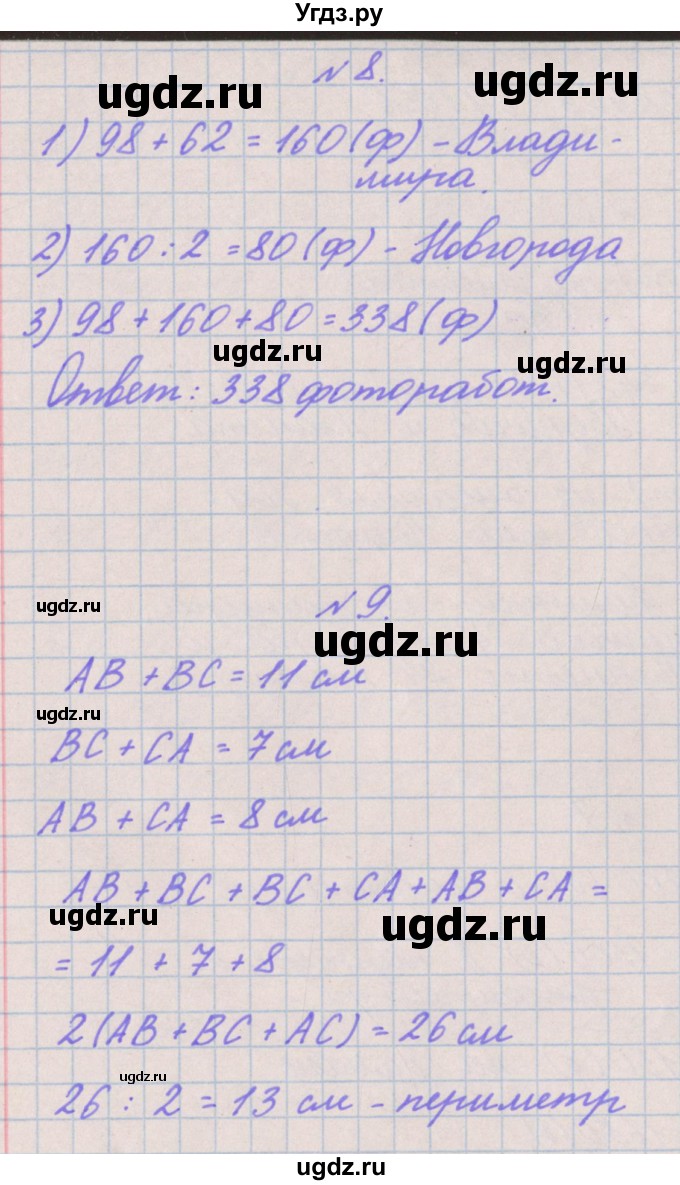 Угдз.ру
№ 8.
ugdz.ru ugdz.ru
1) 98 + 62 = 160 (ф) - Влади-
мира.
2) 160 : 2 = 80 (ф) - Новгорода
3) 98 + 160 + 80 = 338 (ф)
ugdz.ru ugdz.ru
Ответ: 338 фоторабот.
№ 9.
ugdz.ru
ugdz.ru
AB + BC = 11 см
ugdz.ru
BC + CA = 7 см
AB + CA = 8 см
AB + BC + BC + CA + AB + CA =
ugdz.ru ugdz.ru
= 11 + 7 + 8
2 (AB + BC + AC) = 26 см
ugdz.ru
26 : 2 = 13 см - периметр
ugdz.ru